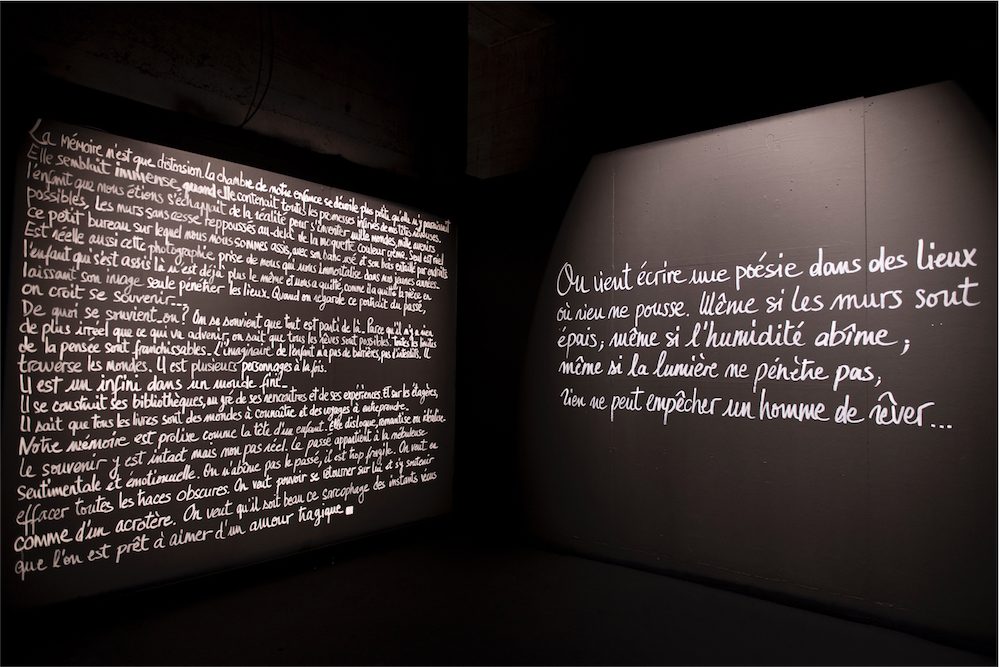 La Mémoire n'est que distorsion la chambre de notre enfance se dévoile plus petite qu'elle n'y paraissait
Elle semblait immense quand elle contenait toutes les promesses infinies de nos têtes rêveuses.
l'enfant que nous étions s'échappait de la réalité pour s'inventer mille mondes, mille avenirs
possibles, Les murs sans cesse reppoussés au-delà de la moquette couleur crème. Seul est réel
ce petit bureau sur lequel nous nous sommes assis, avec son banc usé et son bois entaillé par endroits
Est réelle aussi cette photographie prise de nous qui nous immortalise dans nos jeunes années.
l'enfant qui s'est assis là n'est déjà plus le même et nous a quitté, comme il a quitté la pièce en
laissant son image seule pénétrer les lieux. Quand on regarde ce portrait du passé,
on croit se souvenir...
De quoi se souvient-on? On se souvient que tout est parti de là. Parce qu'il n'y a rien
de plus irréel que ce qui va advenir, on sait que tous les rêves sont possibles. Toutes les limites
de la pensée sont franchissables. L'imaginaire de l'enfant n'a pas de barrières, pas d'interdits. Il
traverse les mondes. Il est plusieurs personnages à la fois.
Il est un infini dans un monde fini...
Il se construit ses bibliothèques, au gré de ses rencontres et de ses expériences. Et sur les étagères,
Il sait que tous les livres sont des mondes à connaître et des voyages à entreprendre.
Notre mémoire est prolixe comme la tête d'un enfant. Elle dialogue, romantise ou idéalise.
Le souvenir y est intact mais non pas réel. Le passé appartient à la nébuleuse
sentimentale et émotionnelle. On n'abîme pas le passé, il est trop fragile. On veut en
effacer toutes les traces obscures. On veut pouvoir se retourner sur lui et s'y soutenir
comme d'un acrotère. On veut qu'il soit beau ce sarcophage des instants vécus
que l'on est prêt à aimer d'un amour tragique
On vient écrire une poésie dans des lieux
où rien ne pousse. Même si les murs sont
épais, même si l'humidité abîme,
même si la lumière ne pénètre pas,
rien ne peut empêcher un homme de rêver...